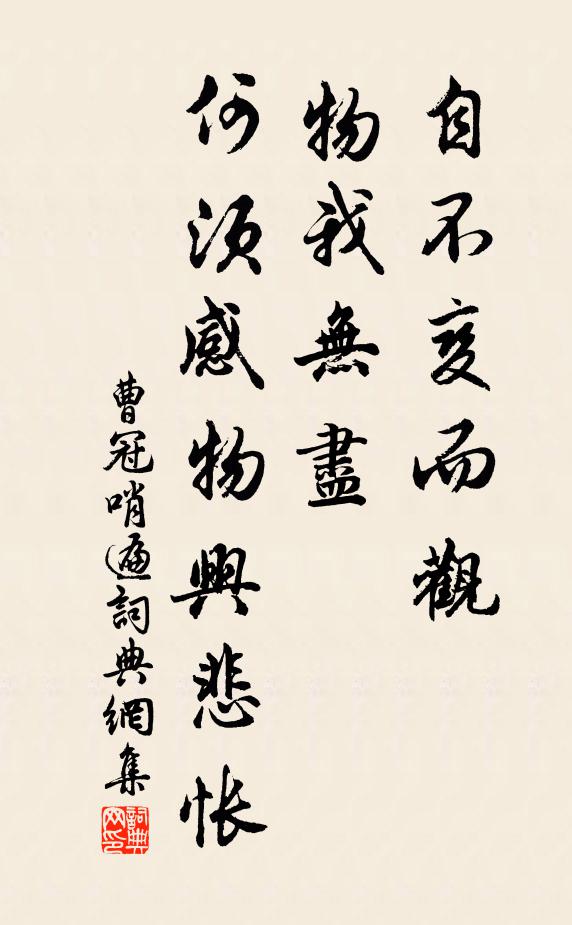 自不变而觀
物我無盡
何須感物興悲悵
曹冠哨遍詞典網集
詞典网印